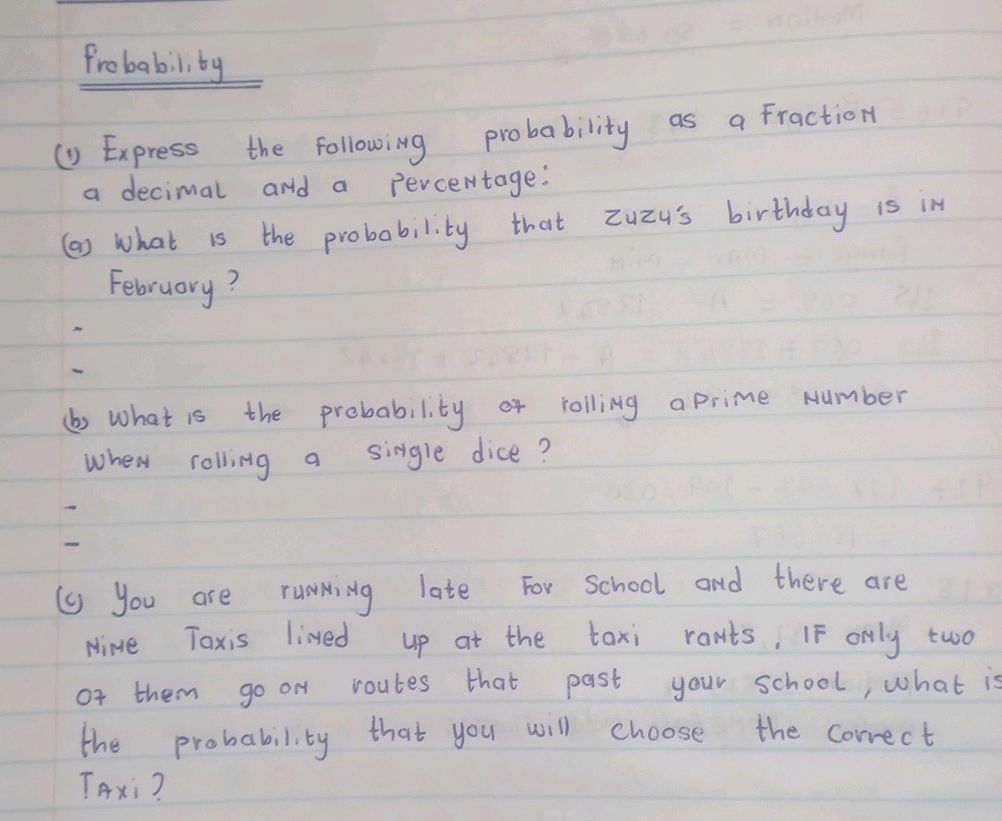 Probability
(1) Express the following probability as a Fraction
a decimal and a percentage:
(a) What is the probability that Zuzu's birthday is in
February?
-
-
(b) What is the probability of rolling a prime number
when rolling a single dice?
-
-
(c) You are running late For School and there are
nine Taxis lined up at the taxi rants, IF only two
of them go on routes that past your school, what is
the probability that you will choose the correct
Taxi?